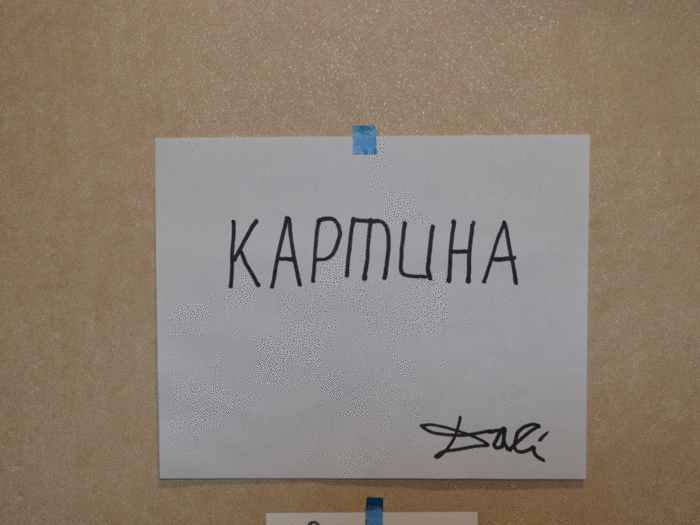 КАРТИНА
Dalí